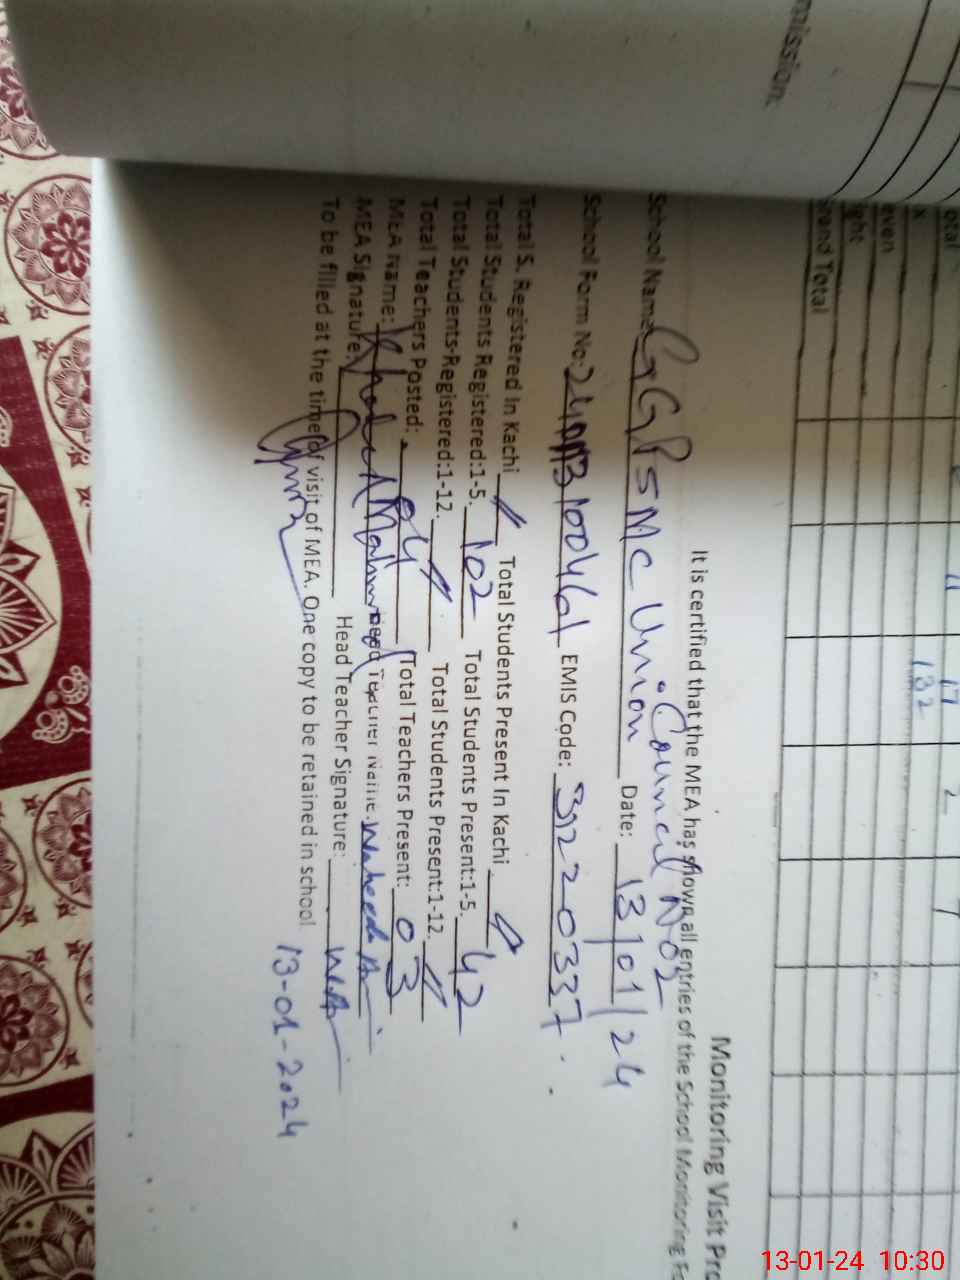 mission.
otal
x
even
ght
rand Total
11
17 2 7
132
Monitoring Visit Pro
It is certified that the MEA has shown all entries of the School Monitoring Fo
School Name: GGPS MC Union Council No 2 Date: 13/01/24
School Form No: EMIS Code: 31220337
Total S. Registered In Kachi 〃 Total Students Present In Kachi 〃
Total Students Registered:1-5. 102 Total Students Present:1-5. 42
Total Students-Registered:1-12. 〃 Total Students Present:1-12. 〃
Total Teachers Posted: 04 Total Teachers Present: 03
MEA Name: Khalid Mahmood Head Teacher Name: Waheed A
MEA Signature: Head Teacher Signature: W.A
To be filled at the time of visit of MEA. One copy to be retained in school.
13-01-2024
13-01-24 10:30